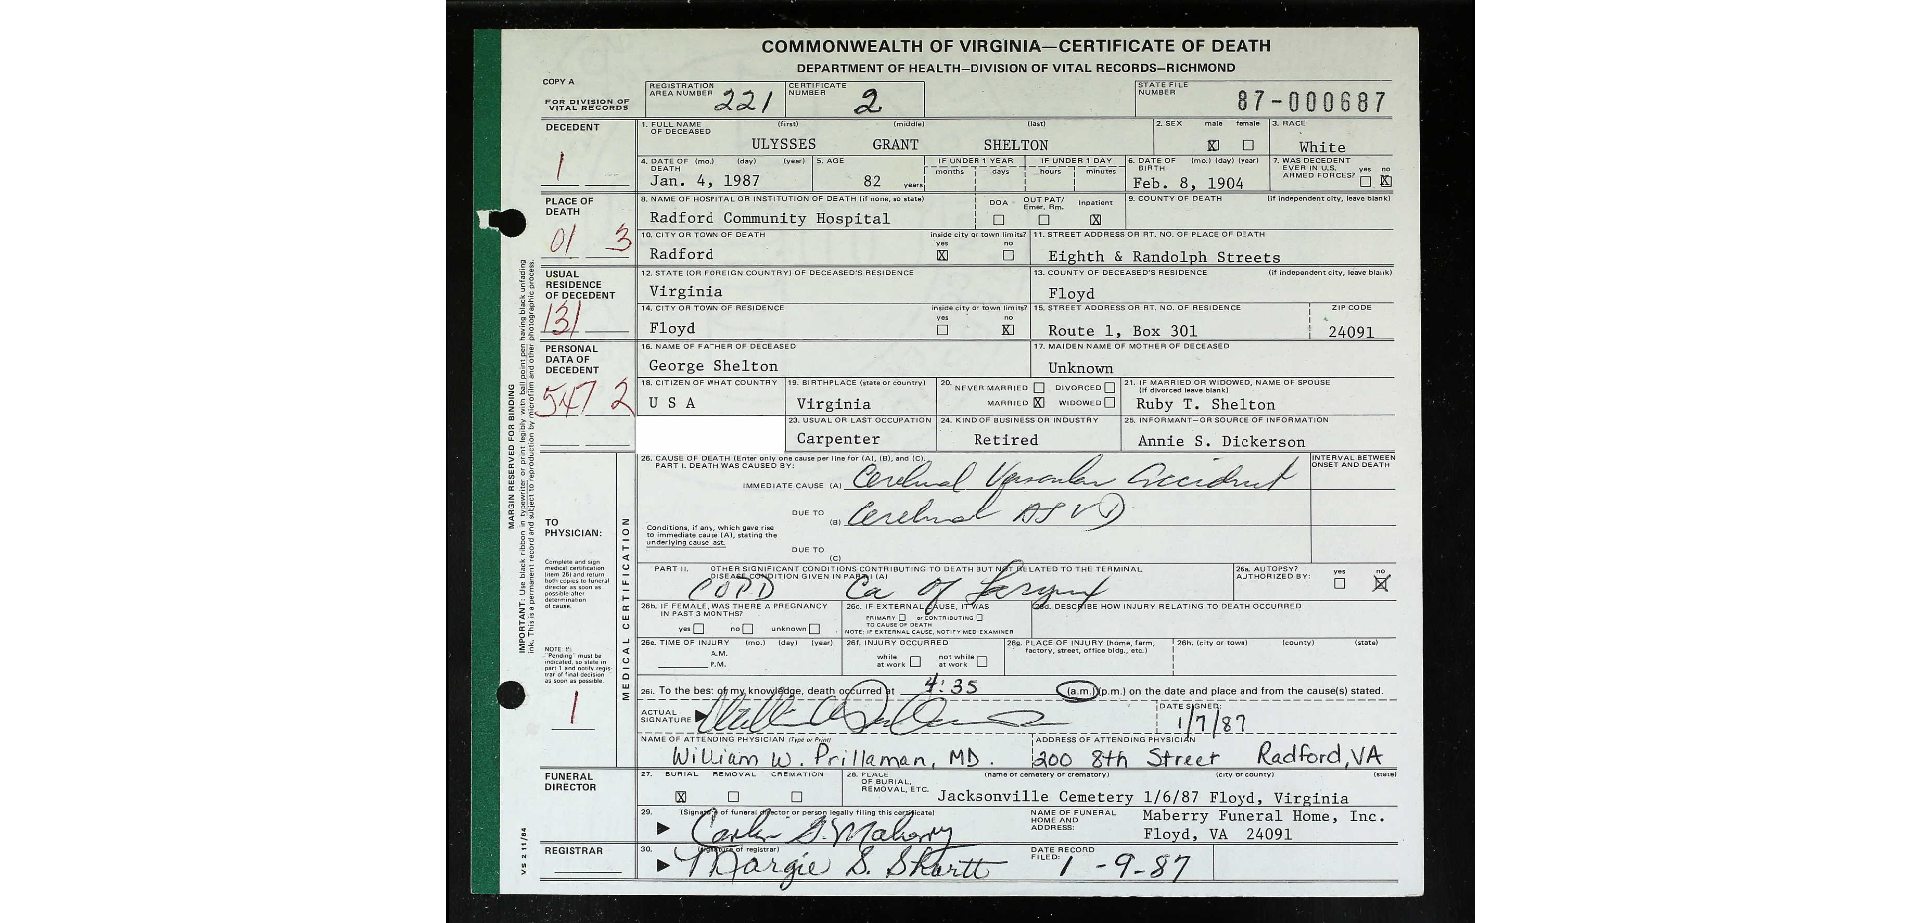 COMMONWEALTH OF VIRGINIA—CERTIFICATE OF DEATH
DEPARTMENT OF HEALTH—DIVISION OF VITAL RECORDS—RICHMOND
COPY A
FOR DIVISION OF VITAL RECORDS
REGISTRATION AREA NUMBER 221
CERTIFICATE NUMBER 2
STATE FILE NUMBER 87-000687
DECEDENT
1
1. FULL NAME OF DECEASED (first) (middle) (last)
ULYSSES GRANT SHELTON
2. SEX male female
X
3. RACE
White
4. DATE OF DEATH (mo.) (day) (year)
Jan. 4, 1987
5. AGE
82 years
IF UNDER 1 YEAR months days
IF UNDER 1 DAY hours minutes
6. DATE OF BIRTH (mo.) (day) (year)
Feb. 8, 1904
7. WAS DECEDENT EVER IN U.S. ARMED FORCES? yes no
X
PLACE OF DEATH
01 3
8. NAME OF HOSPITAL OR INSTITUTION OF DEATH (if none, so state)
Radford Community Hospital
DOA OUT PAT/ Emer. Rm. Inpatient
X
9. COUNTY OF DEATH (if independent city, leave blank)
10. CITY OR TOWN OF DEATH
Radford
inside city or town limits? yes no
X
11. STREET ADDRESS OR RT. NO. OF PLACE OF DEATH
Eighth & Randolph Streets
USUAL RESIDENCE OF DECEDENT
131
12. STATE (OR FOREIGN COUNTRY) OF DECEASED'S RESIDENCE
Virginia
13. COUNTY OF DECEASED'S RESIDENCE (if independent city, leave blank)
Floyd
14. CITY OR TOWN OF RESIDENCE
Floyd
inside city or town limits? yes no
X
15. STREET ADDRESS OR RT. NO. OF RESIDENCE
Route 1, Box 301
ZIP CODE
24091
PERSONAL DATA OF DECEDENT
547 2
16. NAME OF FATHER OF DECEASED
George Shelton
17. MAIDEN NAME OF MOTHER OF DECEASED
Unknown
18. CITIZEN OF WHAT COUNTRY
U S A
19. BIRTHPLACE (state or country)
Virginia
20. NEVER MARRIED DIVORCED
MARRIED X WIDOWED
21. IF MARRIED OR WIDOWED, NAME OF SPOUSE
(if divorced leave blank)
Ruby T. Shelton
23. USUAL OR LAST OCCUPATION
Carpenter
24. KIND OF BUSINESS OR INDUSTRY
Retired
25. INFORMANT—OR SOURCE OF INFORMATION
Annie S. Dickerson
MARGIN RESERVED FOR BINDING
IMPORTANT: Use black ribbon in typewriter or print legibly with ball point pen having black unfading
ink. This is a permanent record and subject to reproduction by microfilm and other photographic process.
MEDICAL CERTIFICATION
TO PHYSICIAN:
Complete and sign
medical certification
(item 26) and return
both copies to funeral
director as soon as
possible after
determination
of cause.
26. CAUSE OF DEATH (Enter only one cause per line for (A), (B), and (C).
PART I. DEATH WAS CAUSED BY:
INTERVAL BETWEEN ONSET AND DEATH
IMMEDIATE CAUSE (A) Cerebral Vascular Accident
DUE TO (B) Cerebral ASVD
Conditions, if any, which gave rise
to immediate cause (A), stating the
underlying cause last.
DUE TO (C)
PART II. OTHER SIGNIFICANT CONDITIONS CONTRIBUTING TO DEATH BUT NOT RELATED TO THE TERMINAL
DISEASE CONDITION GIVEN IN PART I (A)
COPD Ca of Larynx
26a. AUTOPSY? AUTHORIZED BY: yes no
X
26b. IF FEMALE, WAS THERE A PREGNANCY IN PAST 3 MONTHS?
yes no unknown
26c. IF EXTERNAL CAUSE, IT WAS
PRIMARY or CONTRIBUTING
TO CAUSE OF DEATH
NOTE: IF EXTERNAL CAUSE, NOTIFY MED EXAMINER
26d. DESCRIBE HOW INJURY RELATING TO DEATH OCCURRED
NOTE: If
"Pending" must be
indicated, so state in
part 1 and notify regis-
trar of final decision
as soon as possible.
1
26e. TIME OF INJURY (mo.) (day) (year)
A.M.
P.M.
26f. INJURY OCCURRED
while at work not while at work
26g. PLACE OF INJURY (home, farm, factory, street, office bldg., etc.)
26h. (city or town) (county) (state)
26i. To the best of my knowledge, death occurred at 4:35 (a.m.) (p.m.) on the date and place and from the cause(s) stated.
ACTUAL SIGNATURE
DATE SIGNED:
1/7/87
NAME OF ATTENDING PHYSICIAN (Type or Print)
William W. Prillaman, MD.
ADDRESS OF ATTENDING PHYSICIAN
200 8th Street Radford, VA
FUNERAL DIRECTOR
27. BURIAL REMOVAL CREMATION
X
28. PLACE OF BURIAL, REMOVAL, ETC. (name of cemetery or crematory) (city or county) (state)
Jacksonville Cemetery 1/6/87 Floyd, Virginia
29. (Signature of funeral director or person legally filing this certificate)
NAME OF FUNERAL HOME AND ADDRESS:
Maberry Funeral Home, Inc.
Floyd, VA 24091
REGISTRAR
30. (signature of registrar)
Margie S. Shortt
DATE RECORD FILED:
1-9-87
VS 2 11/84